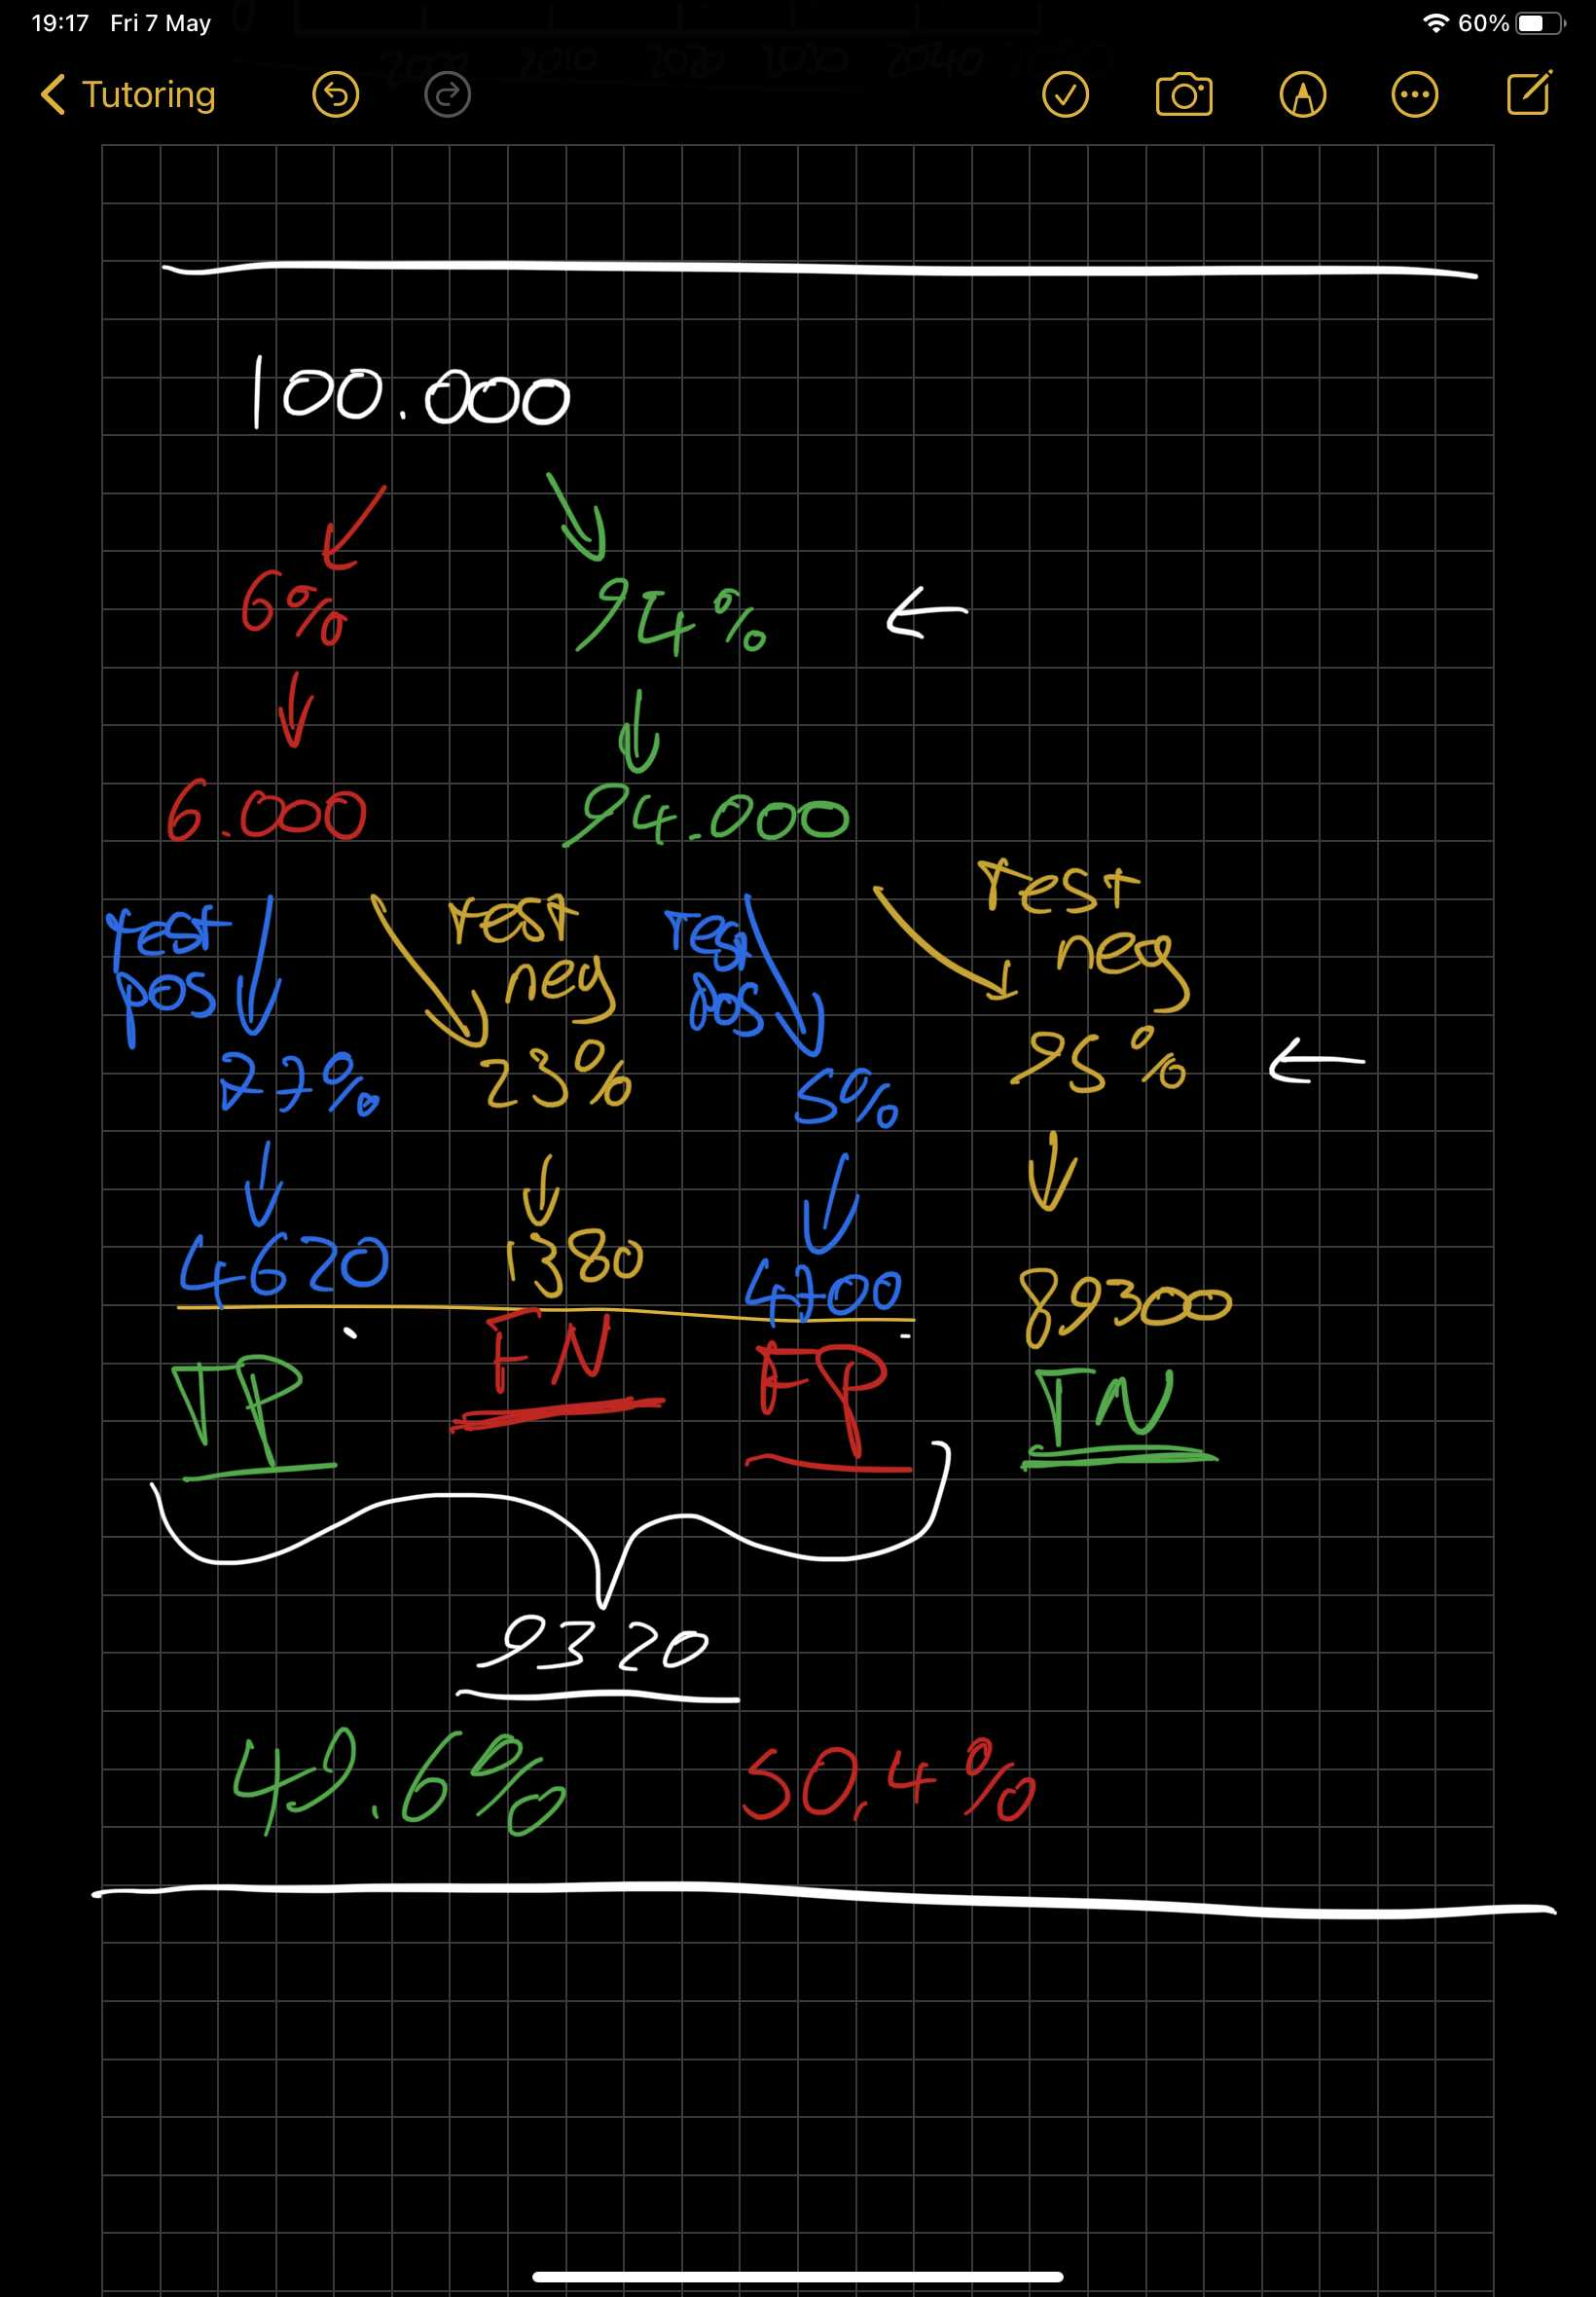 19:17 Fri 7 May 60%
Tutoring
100.000
6% 94%
6.000 94.000
test pos test neg test pos test neg
77% 23% 5% 95%
4620 1380 4700 89300
TP FN FP TN
9320
49.6% 50,4%